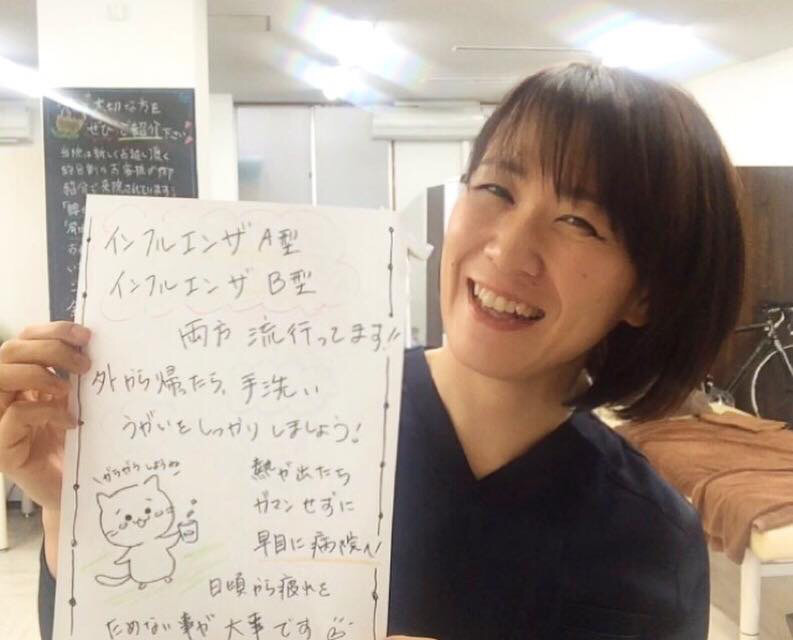 大切な方を
ぜひご紹介下さい
インフルエンザ A型
インフルエンザ B型
両方 流行ってます!!
外から帰ったら、手洗い
うがいをしっかりしましょう!
がらがらしようね
熱が出たら
ガマンせずに
早目に病院へ!
日頃から疲れを
ためない事が大事です